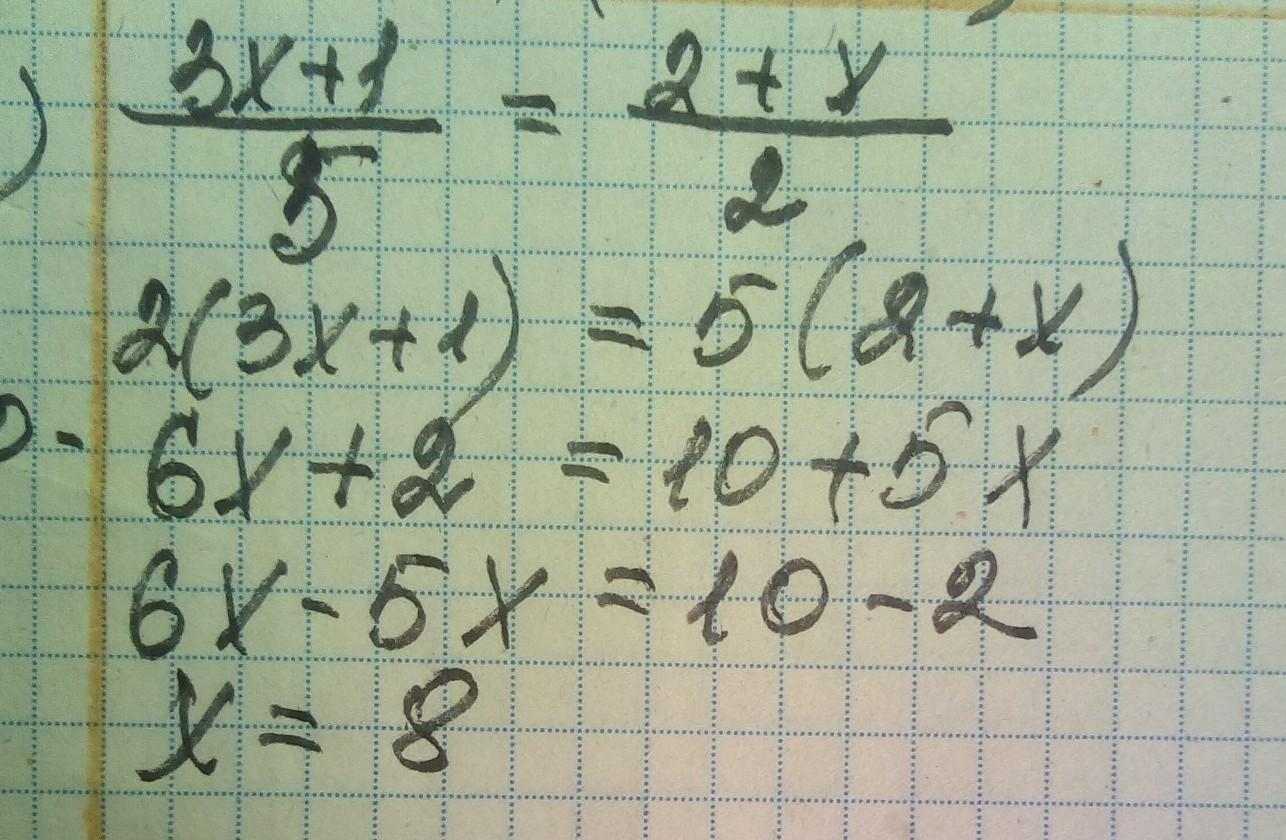 ) (3x+1)/5 = (2+x)/2
2(3x+1) = 5(2+x)
6x+2 = 10+5x
6x-5x=10-2
x=8